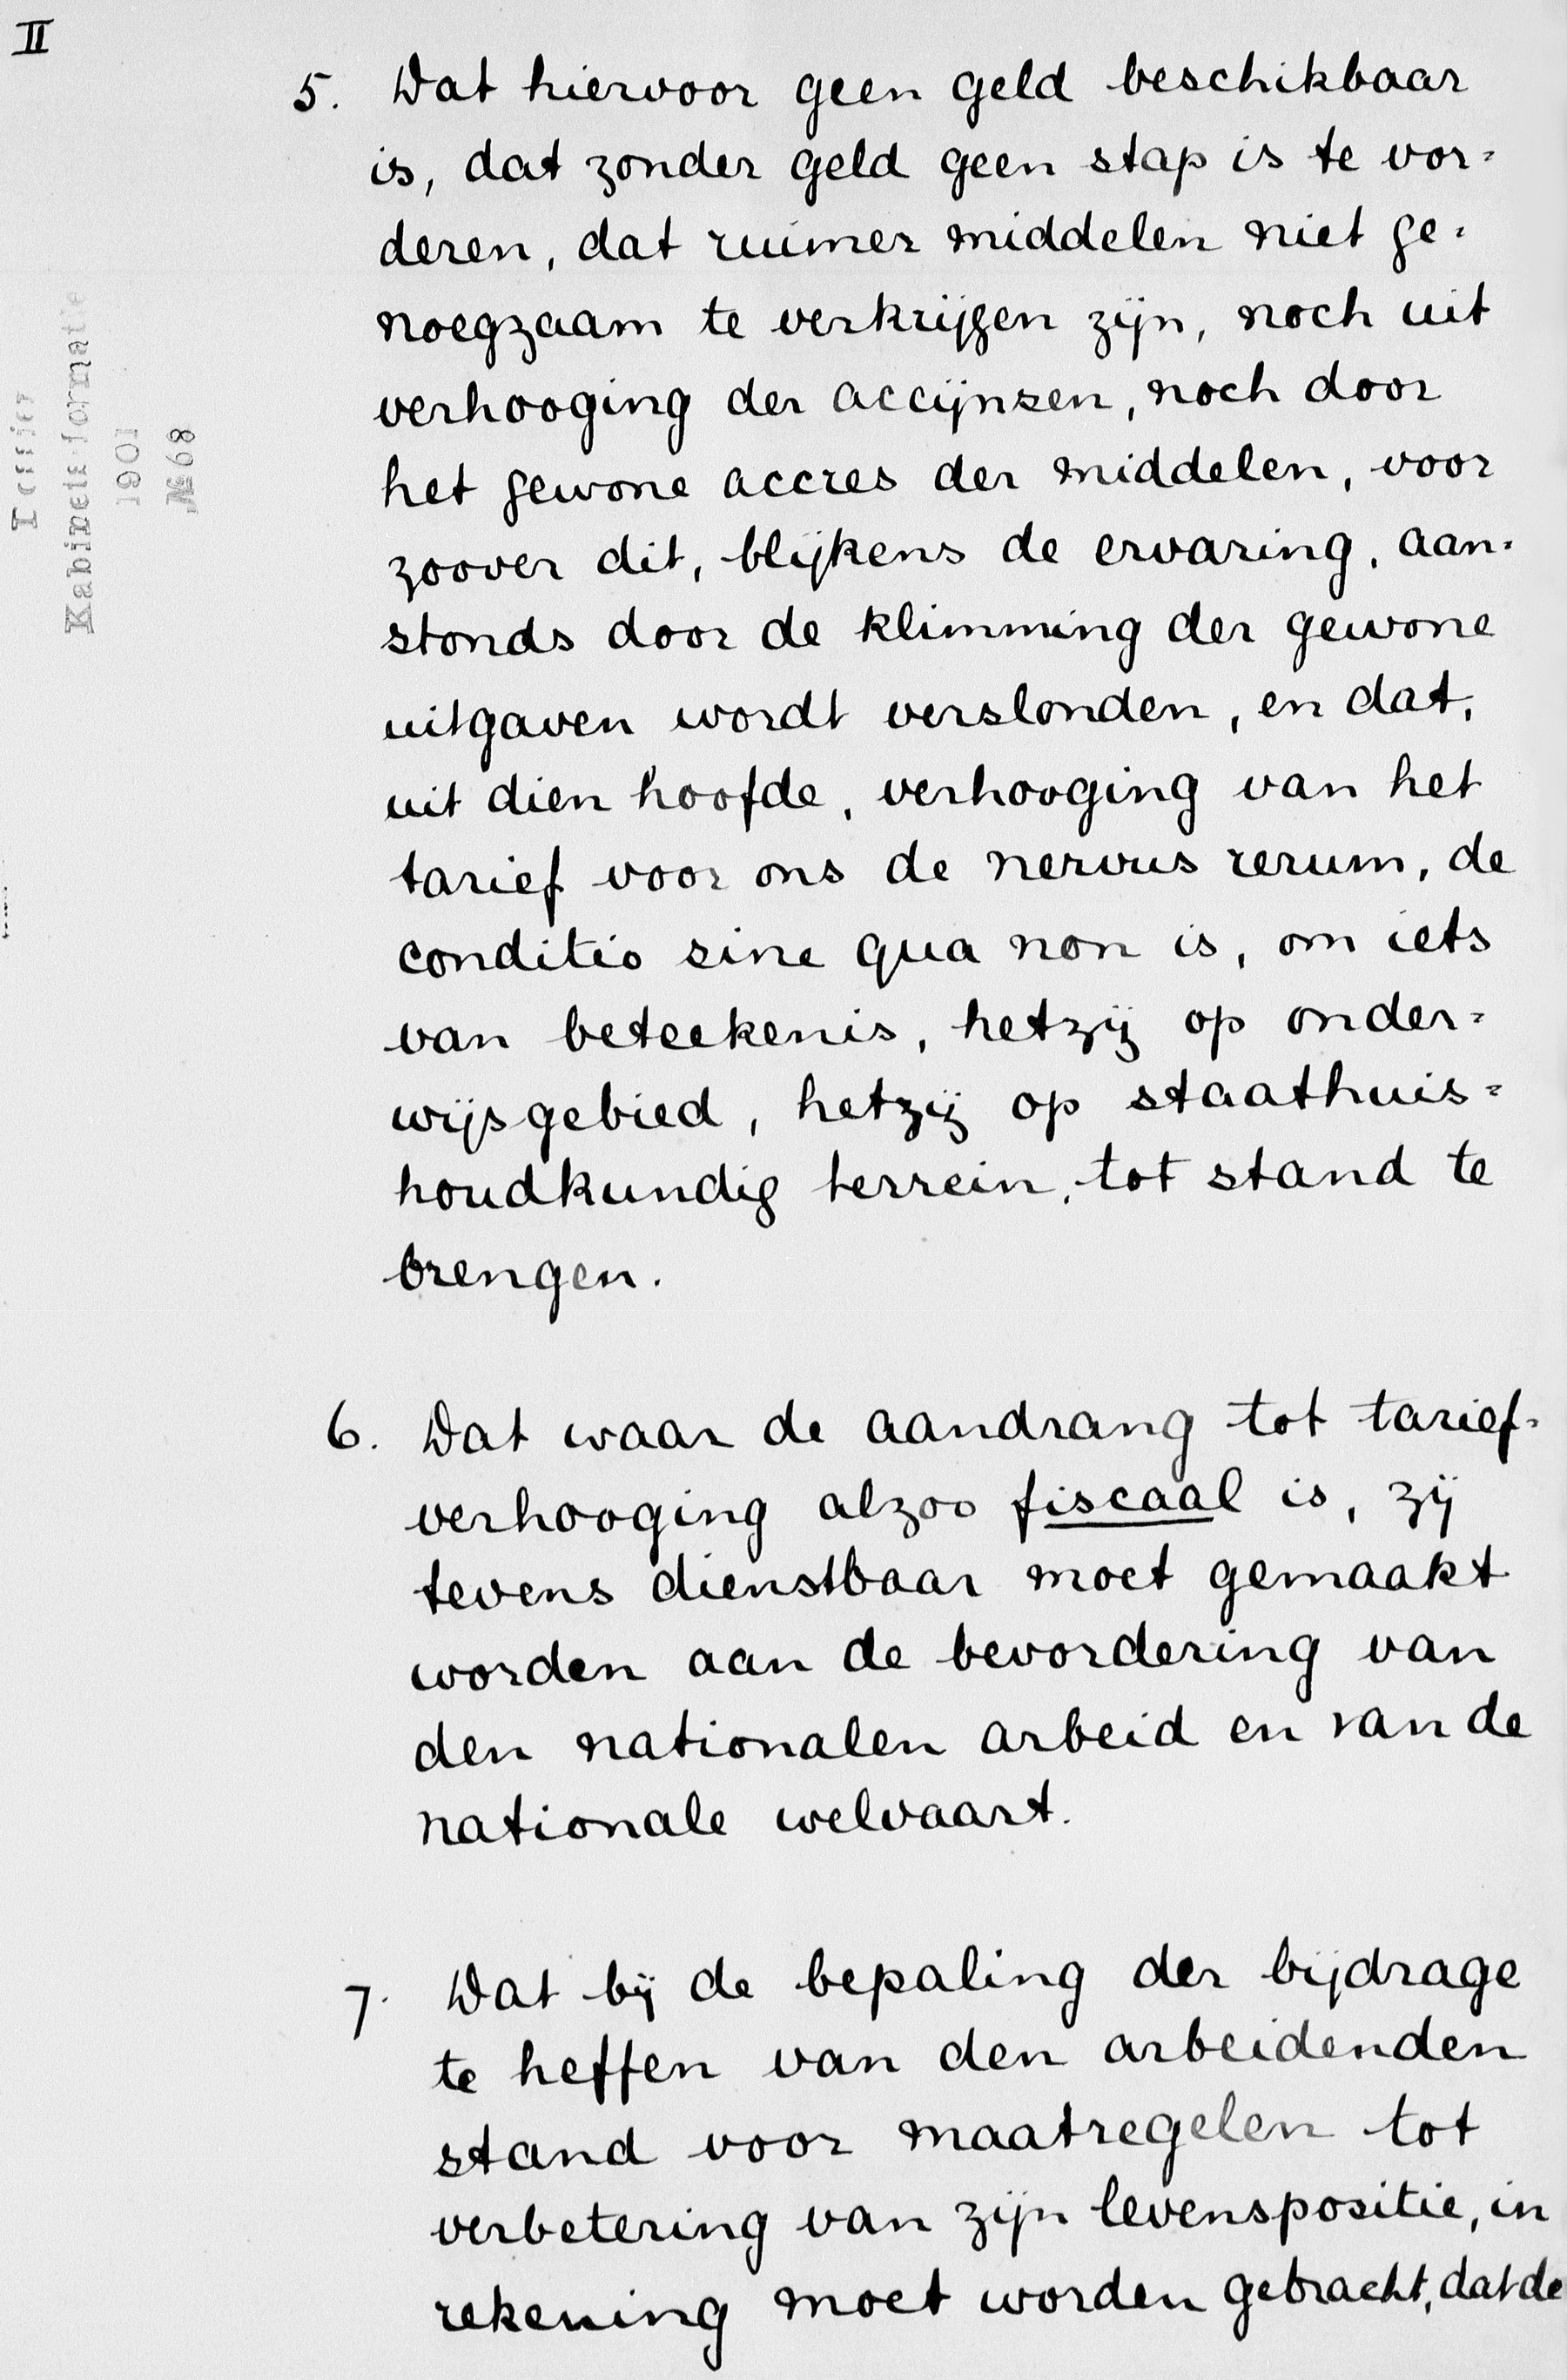 II
5. Dat hiervoor geen geld beschikbaar
is, dat zonder geld geen stap is te vor=
deren, dat ruimer middelen niet ge=
noegzaam te verkrijgen zijn, noch uit
verhooging der accijnzen, noch door
het gewone accres der middelen, voor
zoover dit, blijkens de ervaring, aan=
stonds door de klimming der gewone
uitgaven wordt verslonden, en dat,
uit dien hoofde, verhooging van het
tarief voor ons de nervus rerum, de
conditio sine qua non is, om iets
van beteekenis, hetzij op onder=
wijsgebied, hetzij op staathuis=
houdkundig terrein, tot stand te
brengen.
6. Dat waar de aandrang tot tarief=
verhooging alzoo fiscaal is, zij
tevens dienstbaar moet gemaakt
worden aan de bevordering van
den nationalen arbeid en van de
nationale welvaart.
7. Dat bij de bepaling der bijdrage
te heffen van den arbeidenden
stand voor maatregelen tot
verbetering van zijn levenspositie, in
rekening moet worden gebracht, dat de
Kabinetsformatie
1901
№ 68